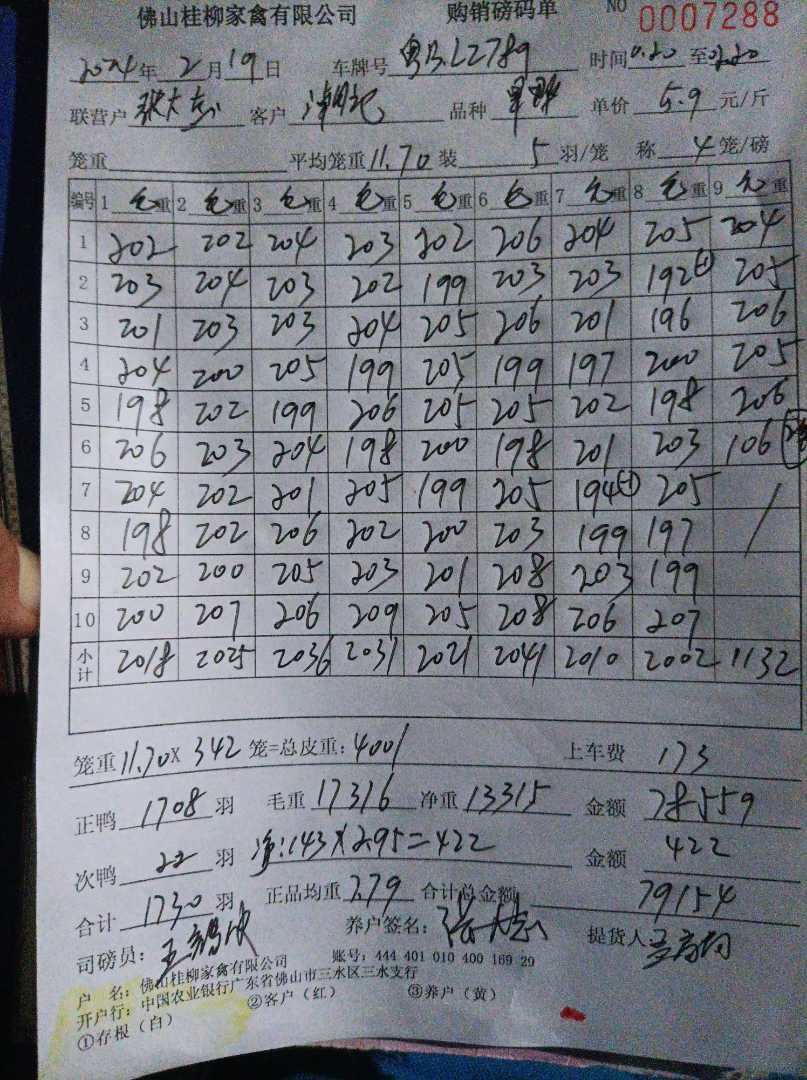 佛山桂柳家禽有限公司 购销磅码单 NO 0007288
2024年2月19日 车牌号 粤BL2789 时间0:20至0:20
联营户 张大志 客户 潮记 品种 单价 5.9 元/斤
笼重 平均笼重11.70装 5 羽/笼 称 4 笼/磅
编号 1 毛重 2 毛重 3 毛重 4 毛重 5 毛重 6 毛重 7 毛重 8 毛重 9 毛重
1 202 202 204 203 202 206 204 205 204
2 203 204 203 202 199 203 203 192 205
3 201 203 203 204 205 206 201 196 206
4 204 200 205 199 205 199 197 200 205
5 198 202 199 206 205 205 202 198 206
6 206 203 204 198 200 198 201 203 106
7 204 202 201 205 199 205 194 205
8 198 202 206 202 200 203 199 197
9 202 200 205 203 201 208 203 199
10 200 207 206 209 205 208 206 207
小计 2018 2025 2036 2031 2021 2041 2010 2002 1132
笼重11.70X 342笼=总皮重:4001 上车费 173
正鸭 1708 羽 毛重 17316 净重 13315 金额 78559
次鸭 22 羽 净:143×2.95=422 金额 422
合计 1730 羽 正品均重 7.79 合计总金额 79154
司磅员: 养户签名: 张大志 提货人
户 名: 佛山桂柳家禽有限公司 账号: 444 401 010 400 169 29
开户行: 中国农业银行广东省佛山市三水区三水支行
①存根(白) ②客户(红) ③养户(黄)